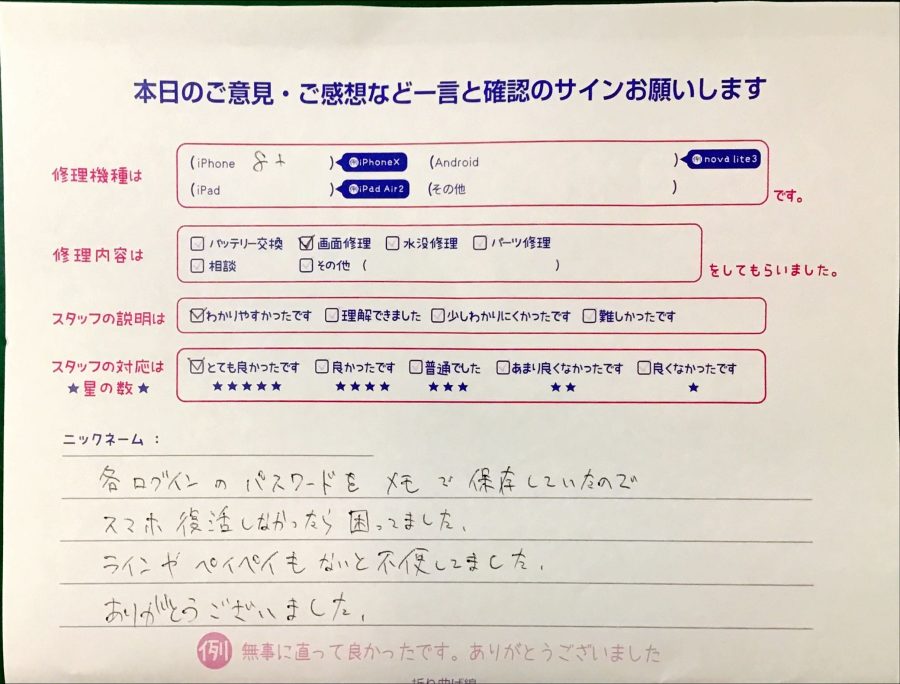 本日のご意見・ご感想など一言と確認のサインお願いします
修理機種は (iPhone 8+ ) iPhoneX (Android ) nova lite3
(iPad ) iPad Air2 (その他 ) です。
修理内容は バッテリー交換 画面修理 水没修理 パーツ修理
相談 その他 ( ) をしてもらいました。
スタッフの説明は わかりやすかったです 理解できました 少しわかりにくかったです 難しかったです
スタッフの対応は とても良かったです 良かったです 普通でした あまり良くなかったです 良くなかったです
★星の数★ ★★★★★ ★★★★ ★★★ ★★ ★
ニックネーム：
各ログインのパスワードをメモで保存していたので
スマホ復活しなかったら困ってました。
ラインやペイペイもないと不便してました。
ありがとうございました。
例 無事に直って良かったです。ありがとうございました